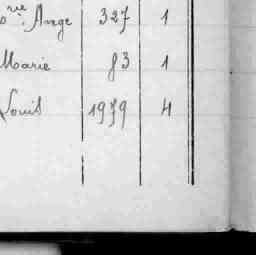 vie Ange 327 1
Marie 83 1
Louis 1979 4